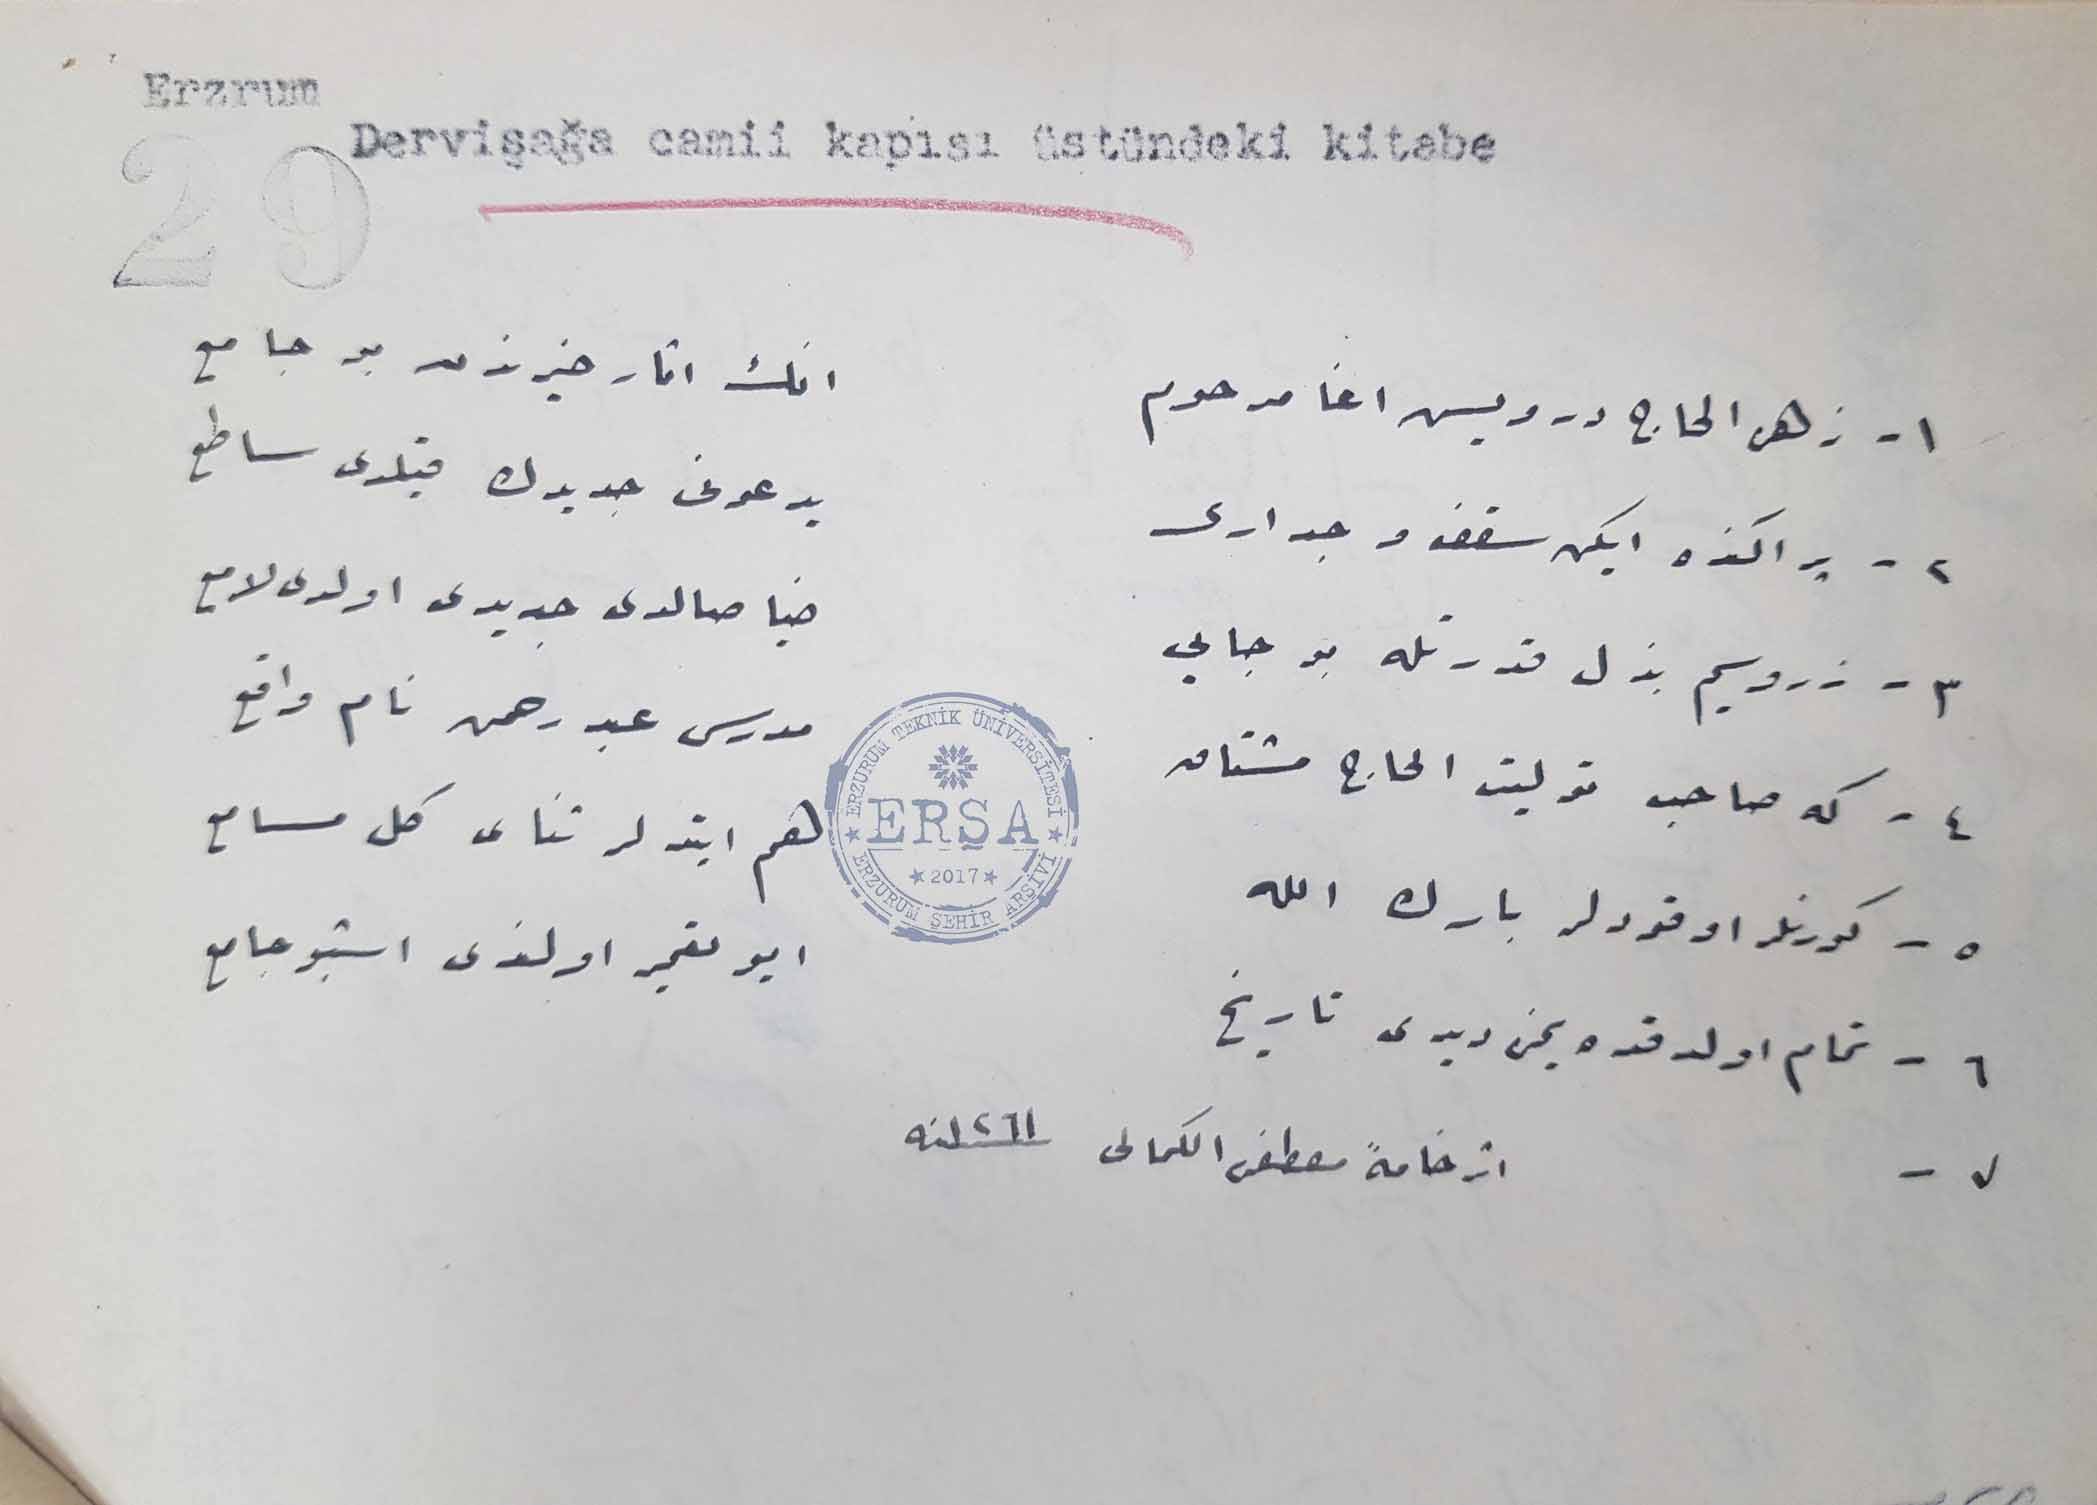 Erzrum
29
Dervişağa camii kapısı üstündeki kitabe
١- زهى الحاج درويش اغا مرحوم انك اثار خيرندن بو جامع
٢- پراكنده ايكن سقف و جدارى جديدك قيلدى ساطع
٣- زر و سيم بذل قدرتله بو جايى ضيا صالدى جديدى اولدى لامع
٤- كه صاحب توليت الحاج مشتاق مدرس عبدرحمن نام واقع
٥- كورنلر اوقودلر بارك الله هم ايتدلر ثناى كل مسامع
٦- تمام اولدقده ديدى تاريخ ايو تعمير اولندى اشبو جامع
٧- اثر خامهٔ مصطفى الكمالى ١٢٦١ سنه
ERZURUM TEKNİK ÜNİVERSİTESİ
ERŞA
2017
ERZURUM ŞEHİR ARŞİVİ